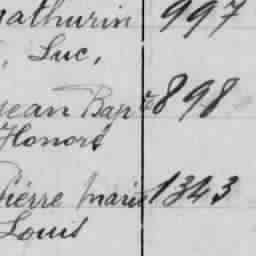 Mathurin 997
, Luc,
Jean Bapte 898
Honoré
Pierre Marie 1343
Louis